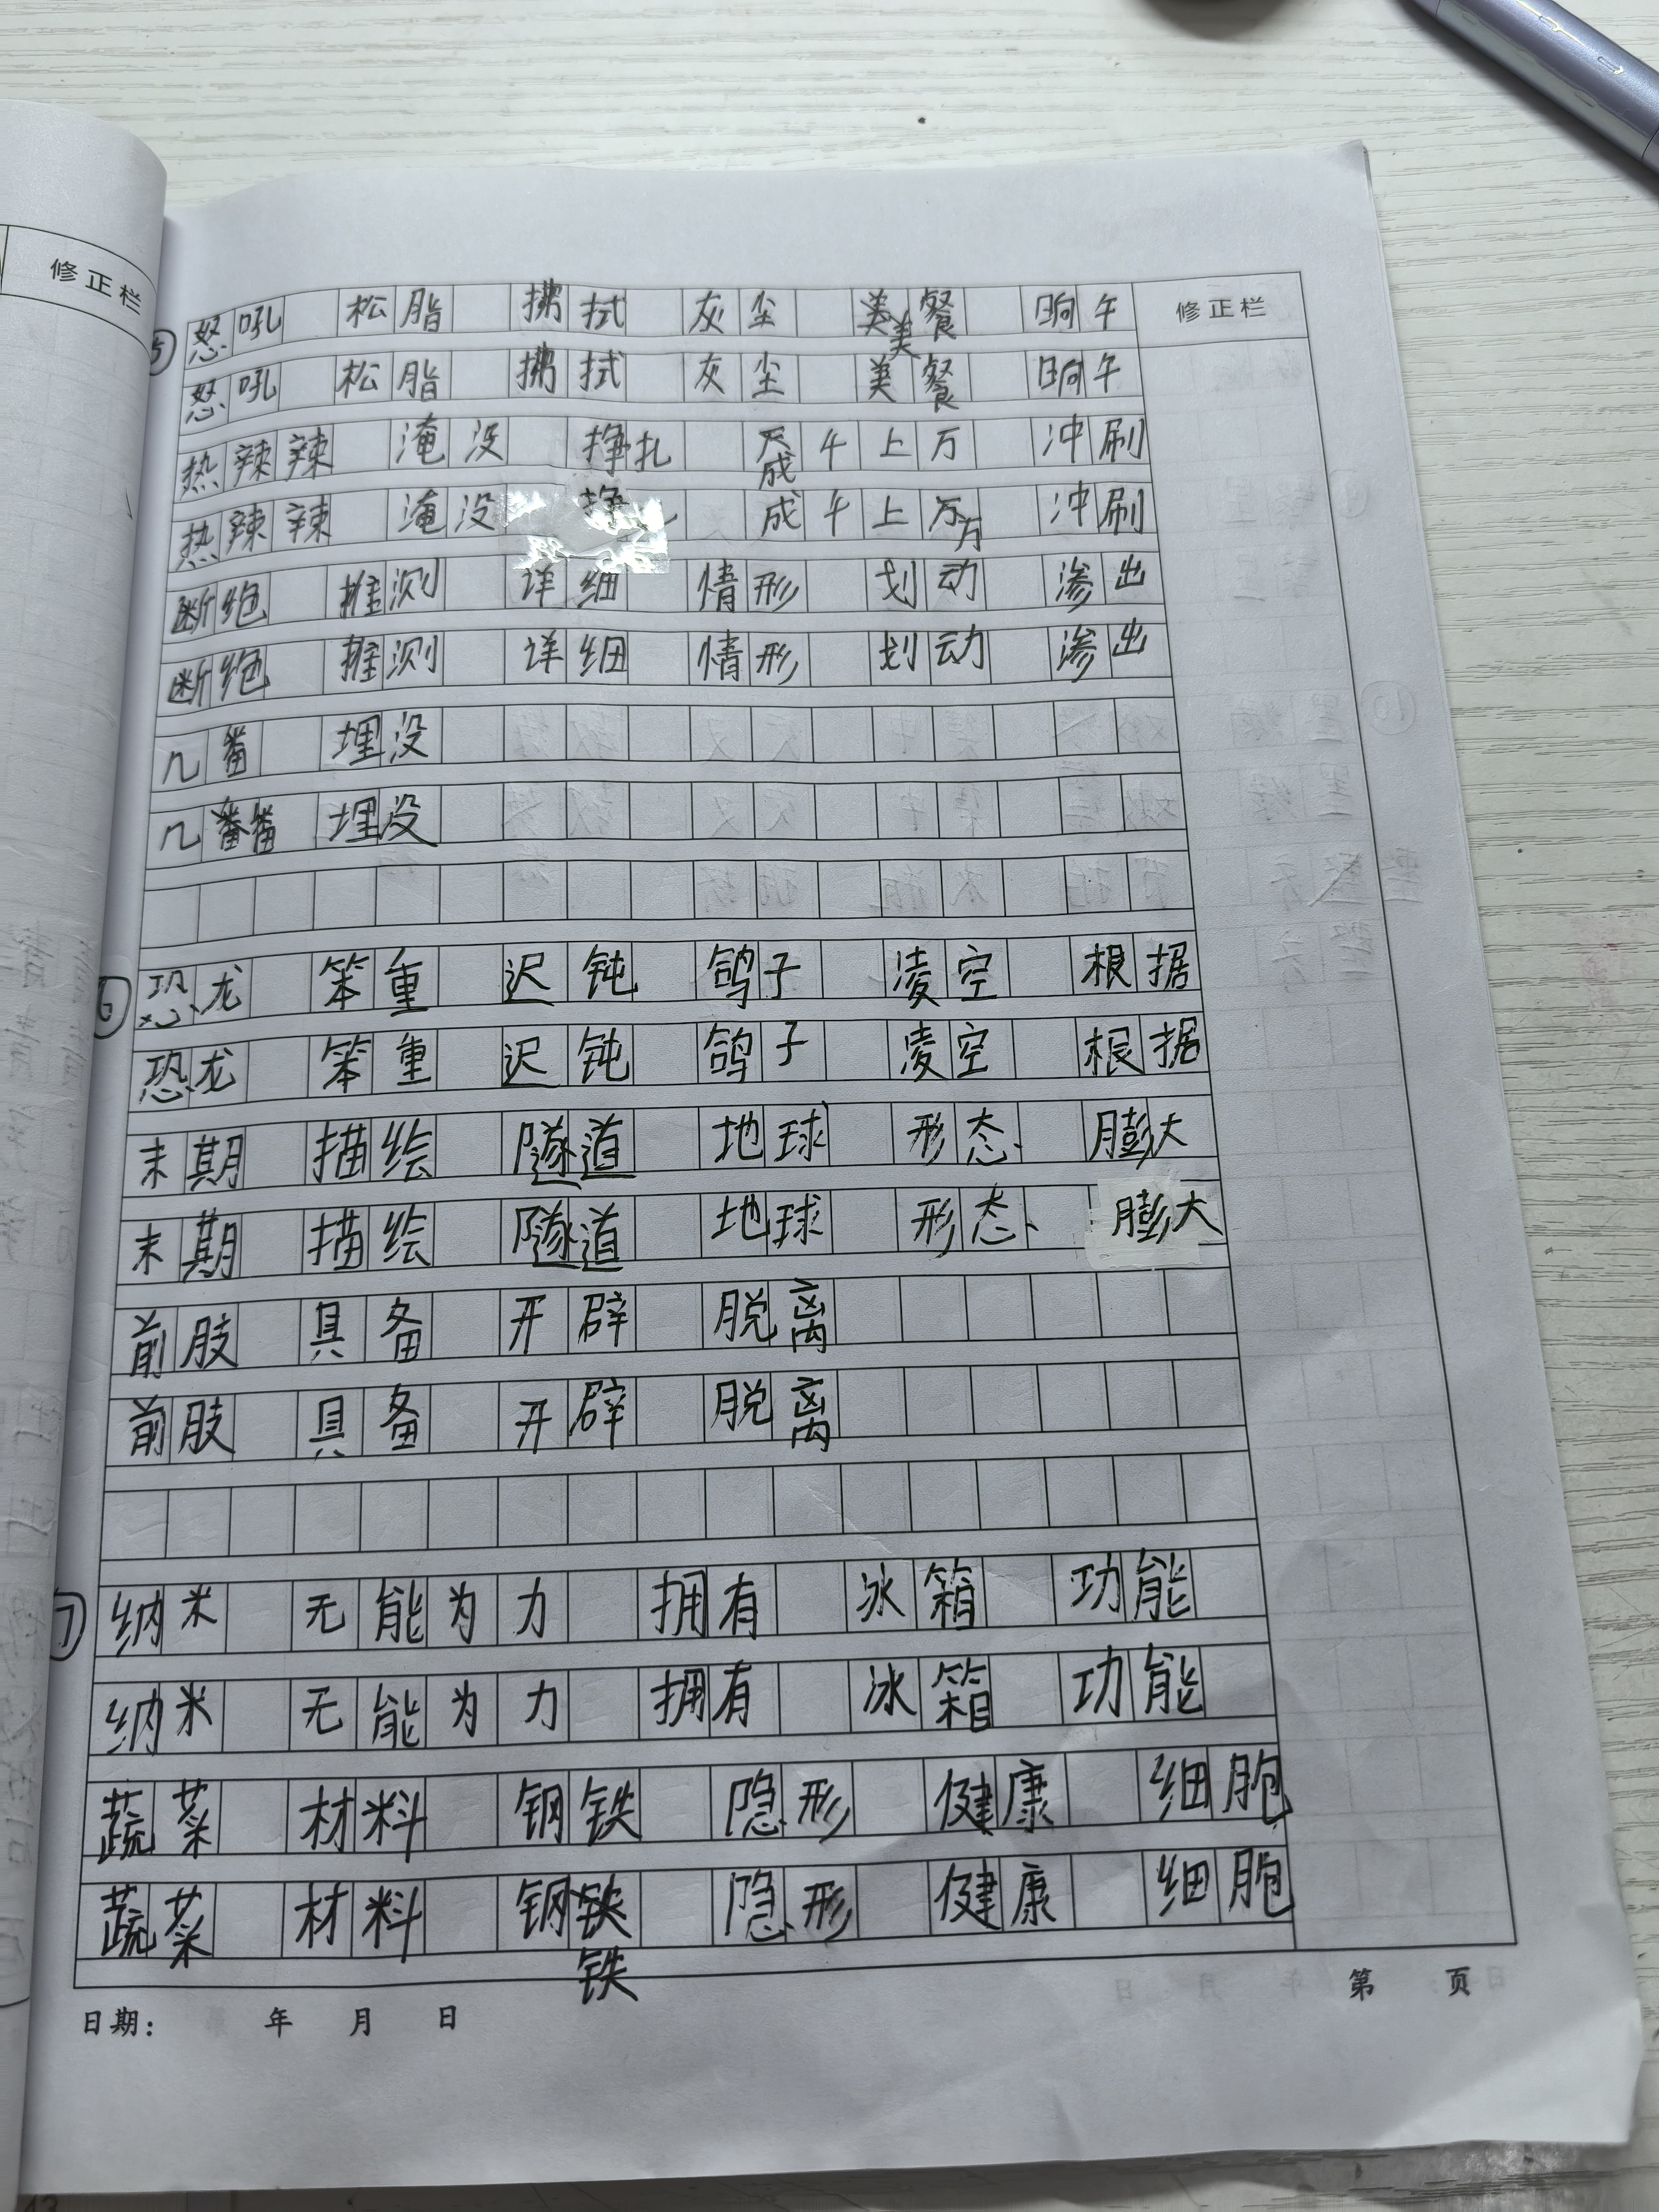 修正栏
修正栏
⑤ 怒吼 松脂 拂拭 灰尘 美美餐 晌午
怒吼 松脂 拂拭 灰尘 美餐 晌午
热辣辣 淹没 挣扎 成千上万 冲刷
热辣辣 淹没 挣扎 成千上万万 冲刷
断绝 推测 详细 情形 划动 渗出
断绝 推测 详细 情形 划动 渗出
几番 埋没
几番番 埋没
⑥ 恐龙 笨重 迟钝 鸽子 凌空 根据
恐龙 笨重 迟钝 鸽子 凌空 根据
末期 描绘 隧道 地球 形态 膨大
末期 描绘 隧道 地球 形态 膨大
前肢 具备 开辟 脱离
前肢 具备 开辟 脱离
⑦ 纳米 无能为力 拥有 冰箱 功能
纳米 无能为力 拥有 冰箱 功能
蔬菜 材料 钢铁 隐形 健康 细胞
蔬菜 材料 钢铁 隐形 健康 细胞
铁
日期： 年 月 日 第 页